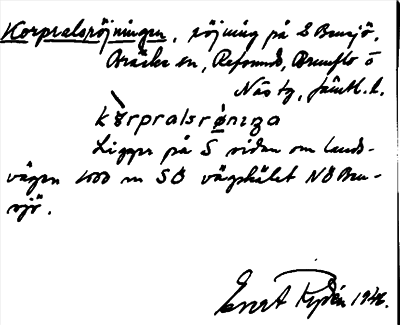 Korpralsröjningen, röjning på S Bensjö,
Bräcke sn, Refsunds, Brunflo o
Näs tg, Jämtl. l.
kårpralsrøniza
Ligger på S sidan om lands-
vägen 1000 m SO vägskälet NO Ben-
sjö.
Evert Rydén 1946.